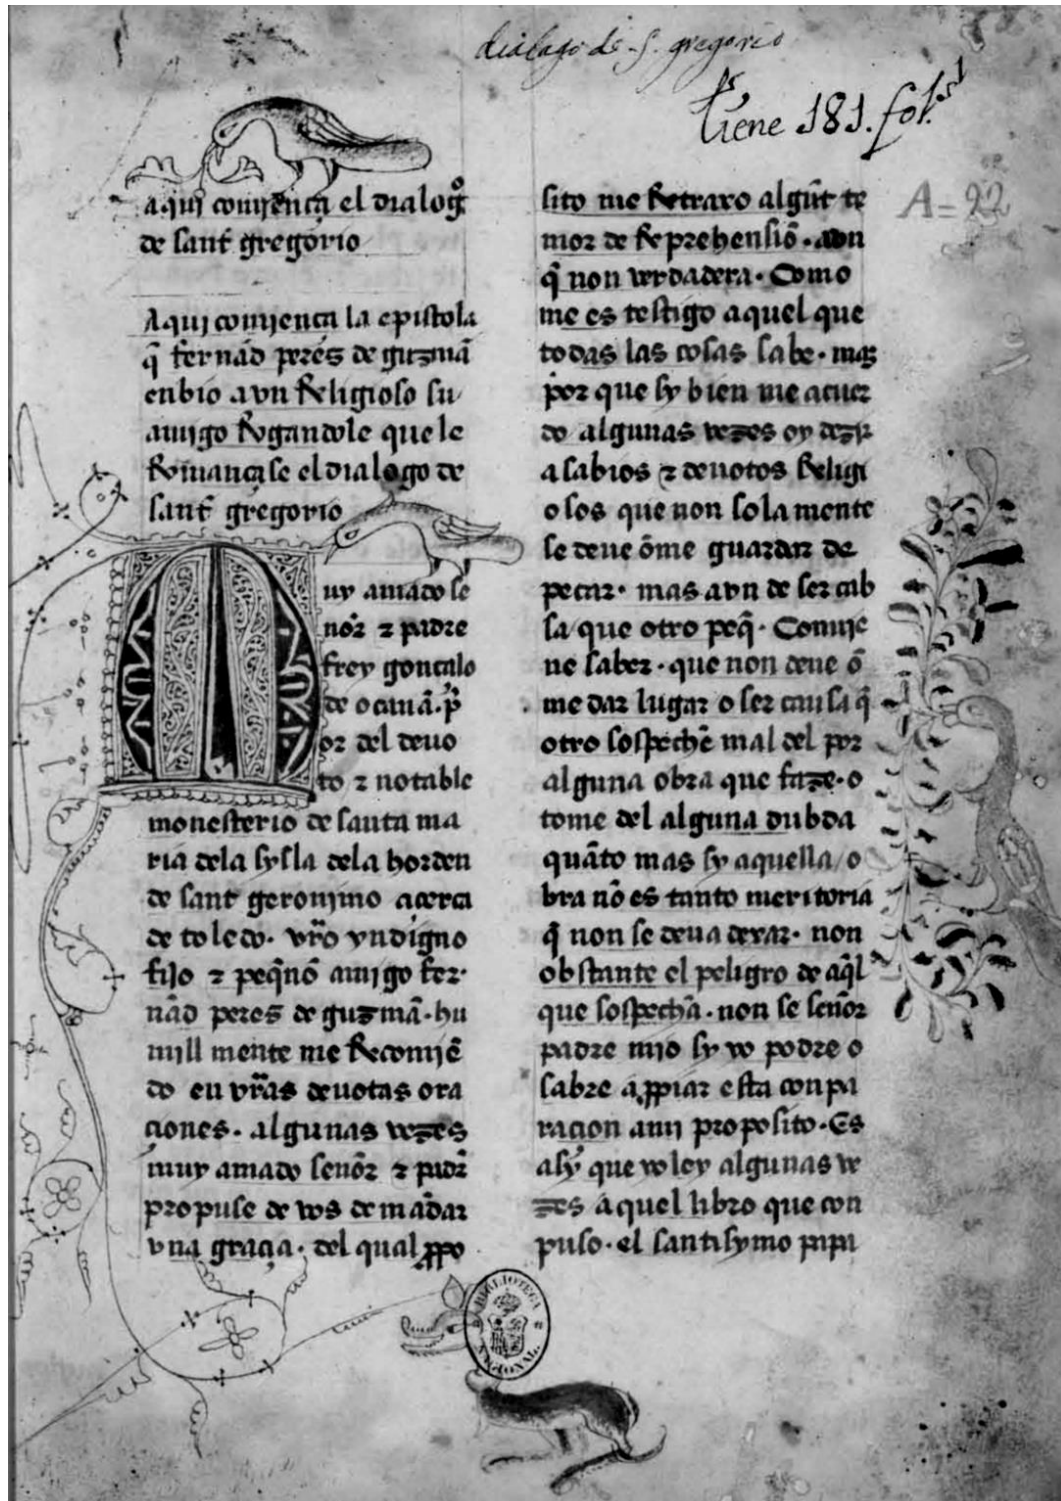 dialago de S. gregorio
tiene 181. fol.
A=22
Aqui comjença el dialog̃o
de sant̃ gregorio
Aqui comjença la epistola
q̃ fernãd peres de guzmã
enbio a vn Religioso su
amigo Rogandole que le
Romançase el dialogo de
sant̃ gregorio
Muy amado se
ñor ⁊ padre
frey gonçalo
de ocanã. pͥ
or del deuo
to ⁊ notable
monesterio de santa ma
ria dela sysla dela horden
de sant geronjmo açerca
de toledo. vr̃o yndigno
fijo ⁊ peq̃nõ amigo fer
nãd peres de guzmã. hu
mill mente me Recomjẽ
do en vr̃as deuotas ora
çiones. algunas vezes
muy amado senõr ⁊ padr̃
propuse de vos demãdar
vna graçia. del qual ꝓpo
sito me Retraxo algũt te
mor de Reprehensiõ. avn
q̃ non verdadera. Como
me es testigo aquel que
todas las cosas sabe. mas
por que sy bien me acuer
do algunas vezes oy dezir
a sabios ⁊ deuotos Religi
osos que non sola mente
se deue õme guardar de
pecar. mas avn de ser cab
sa que otro peq̃. Conuje
ne saber. que non deue õ
me dar lugar o ser causa q̃
otro sospechẽ mal del por
alguna obra que faze. o
tome del alguna dubda
quãto mas sy aquella o
bra nõ es tanto meritoria
q̃ non se deua dexar. non
obstante el peligro de aq̃l
que sospechã. non se señor
padre mjo sy yo podre o
sabre aꝓpiar esta conpa
raçion amj proposito. Es
asy que yo ley algunas ve
zes aquel libro que con
puso. el santisymo papa
BIBLIOTECA NACIONAL